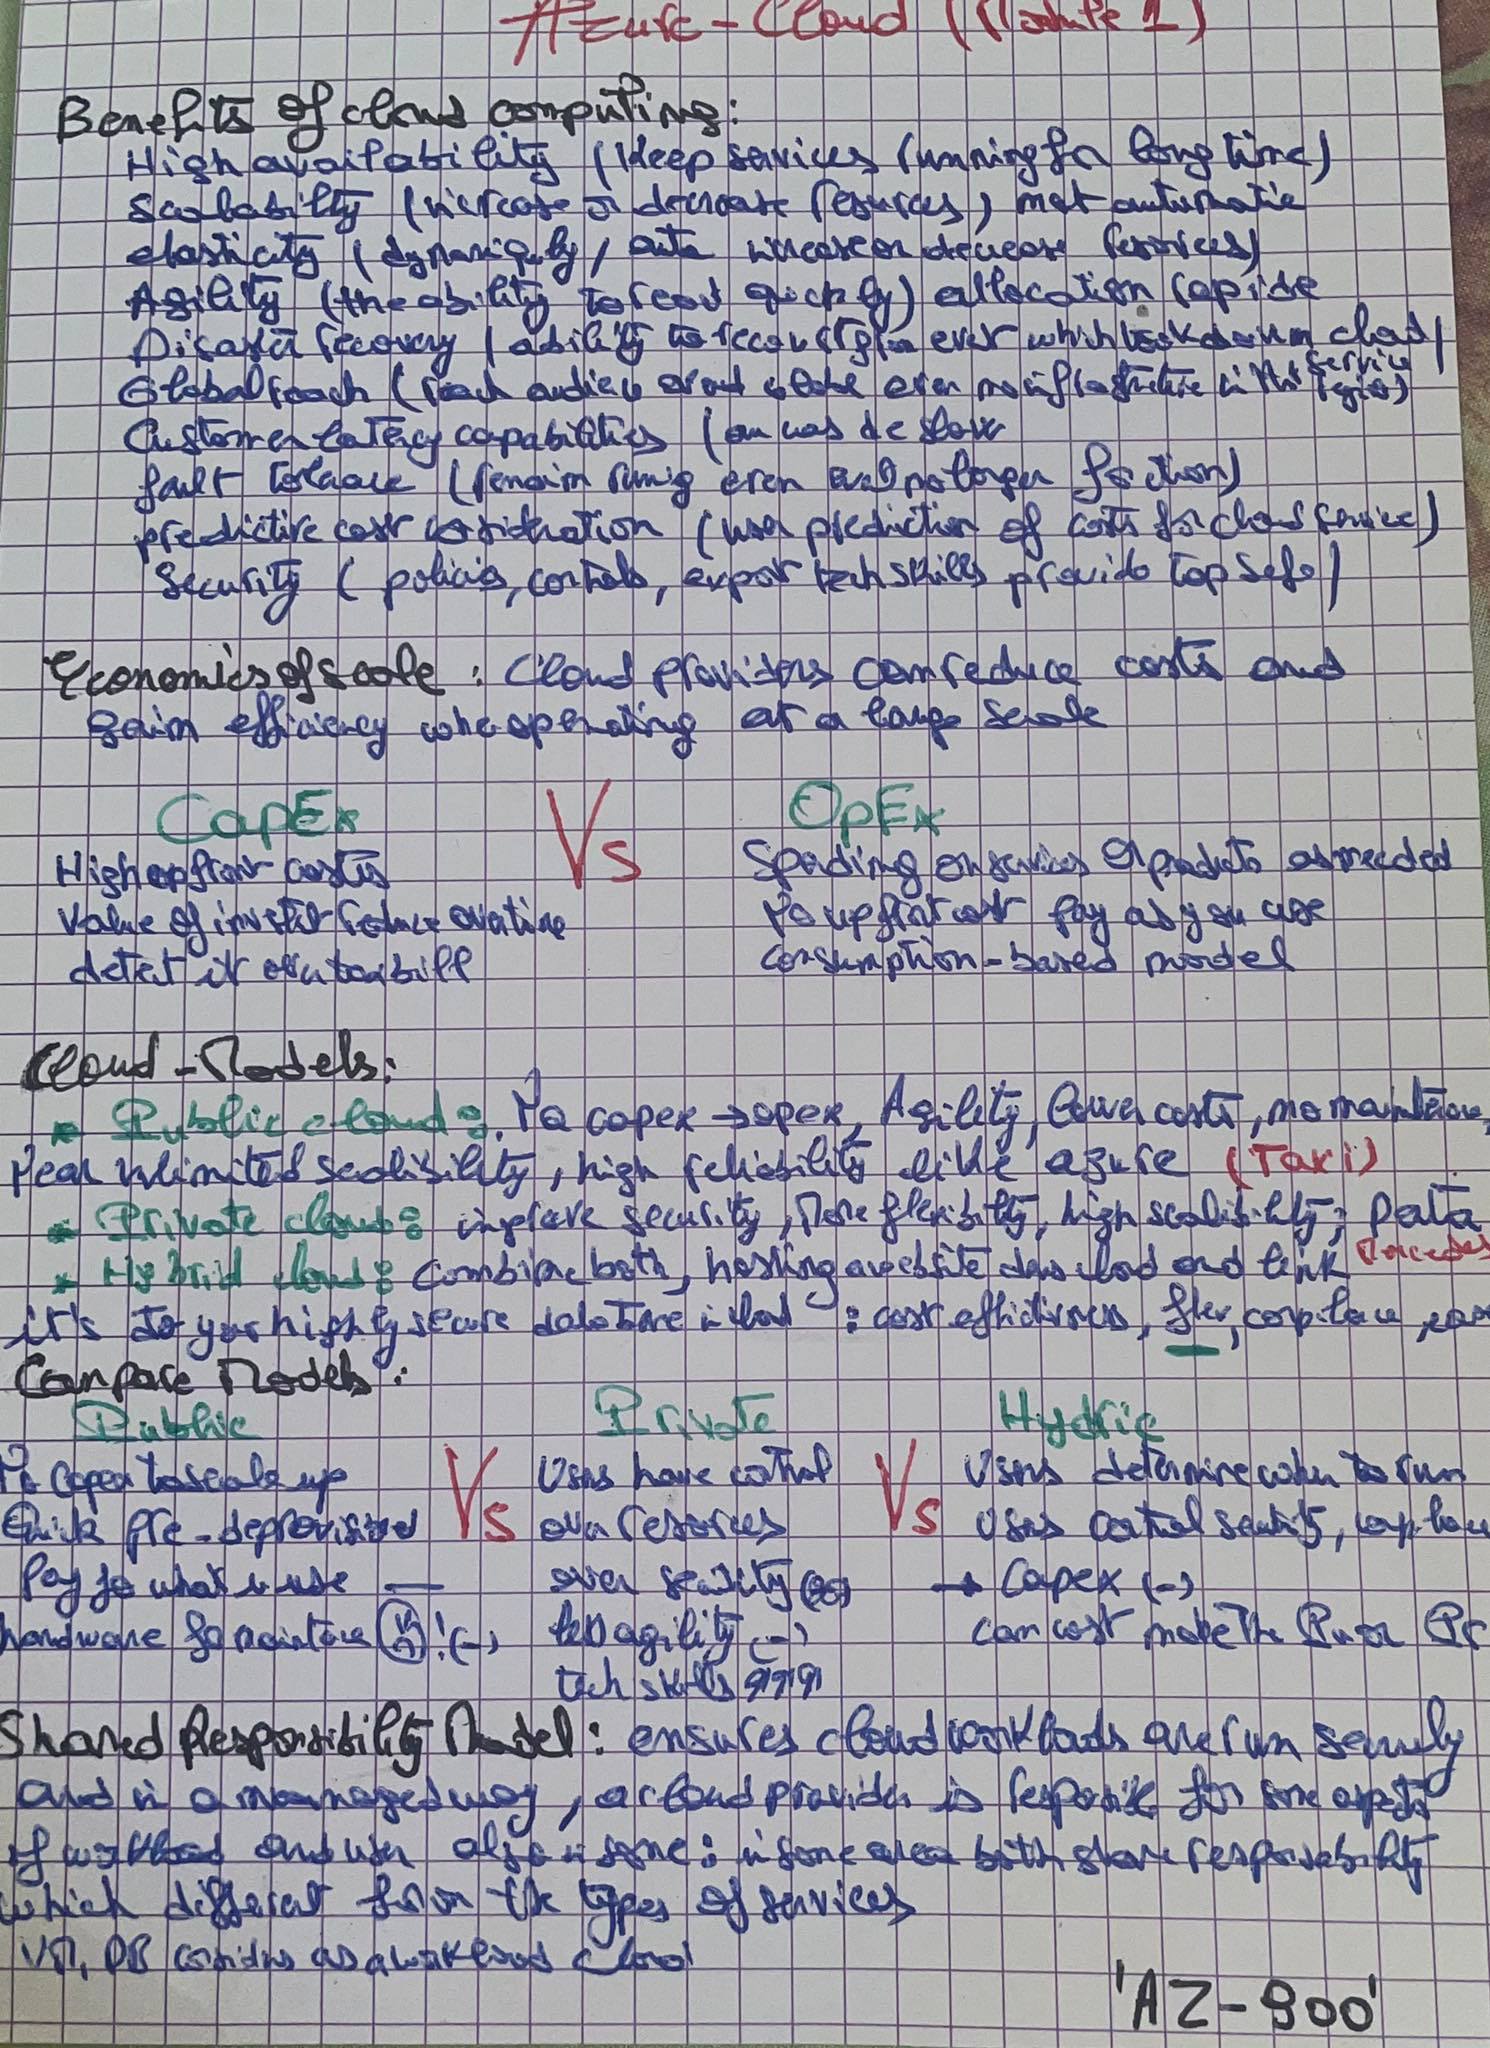 Azure-Cloud (Module 1)
Benefits of cloud computing:
High availability (keep services running for long time)
Scalability (increase or decrease resources) not automatic
elasticity (dynamiquly, auto increase or decrease resources)
Agility (the ability to react quickly) allocation rapide
Disaster recovery (ability to recover from event which took down cloud service)
Global reach (reach audience around globe even no infrastructure in that region)
Customer latency capabilities (au cas de slow
fault tolerance (remain runing even no longer function)
predictive cost consideration (user prediction of costs for cloud service)
Security (policies, controls, expert tech skills provide top safe)
Economics of scale : Cloud providers can reduce costs and
gain efficiency whe operating at a large scale
CapEx Vs OpEx
High upfront costs
Value of invest reduce overtime
detect it over tax bill
Spending on services & products as needed
No upfront cost pay as you use
consumption-based model
Cloud-Models:
Public cloud: No capex → opex, Agility, lower costs, no maintenance,
Near unlimited scalibility, high reliability like azure (Taxi)
Private cloud: improve security, More flexibility, high scalibility; Data
Hybrid cloud: Combine both, hosting a website dans cloud and link Mercedes
it's to your highly secure in cloud : cost , flex, compliace,
Compare Models:
Public Vs Private Vs Hydric
No Capex to scale up
Quick pre-deprovisined
Pay for what u use —
hardware !(-)
Users have control
over resources
over security
less agility (-)
tech skills
Users determine when to run
Users control security,
→ Capex (-)
can cost more the
Shared Responsibility Model: ensures cloud workloads are run securly
and in a mannaged way, a cloud provider is responsible for some aspects
of workload and user also in some: in some area both share responsability
which different from the types of services
VM, DB considers as a workload cloud
'AZ-900'